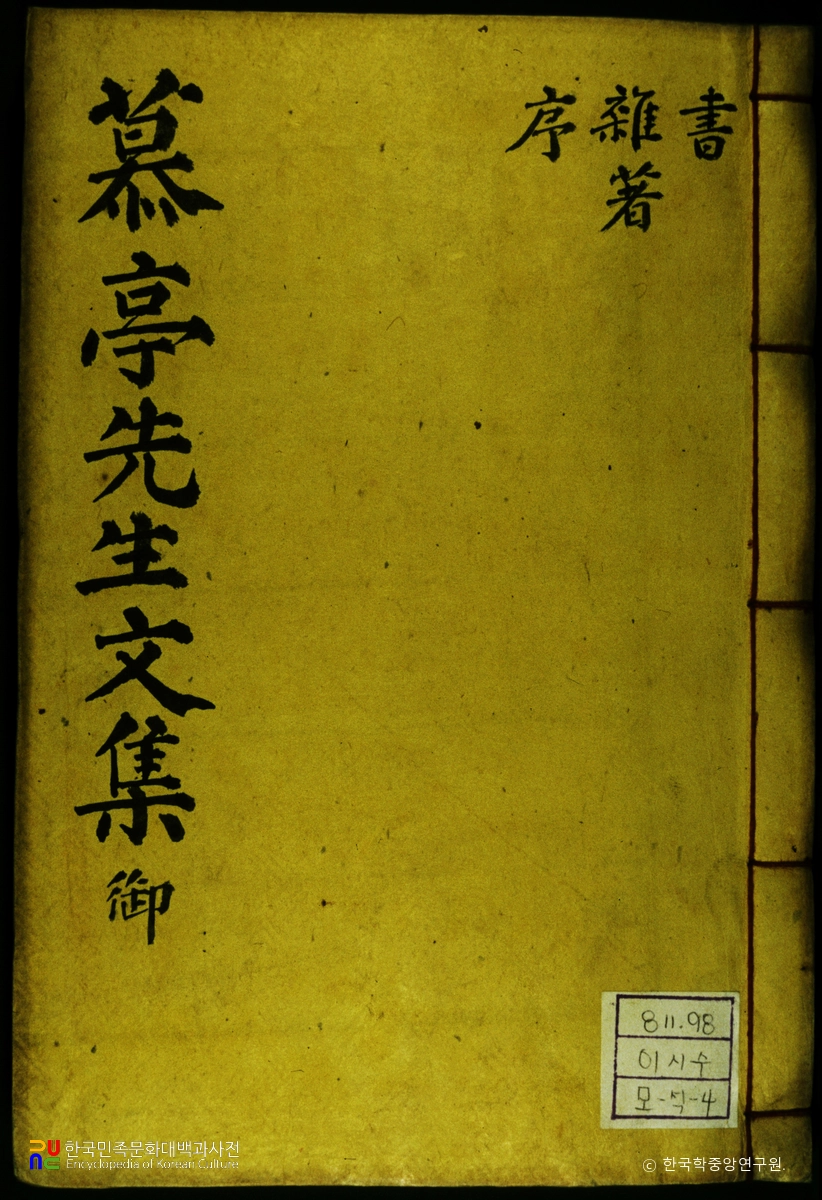 書
雜著
序
慕亭先生文集 御
811.98
이시수
모-식-4
한국민족문화대백과사전
Encyclopedia of Korean Culture
© 한국학중앙연구원.